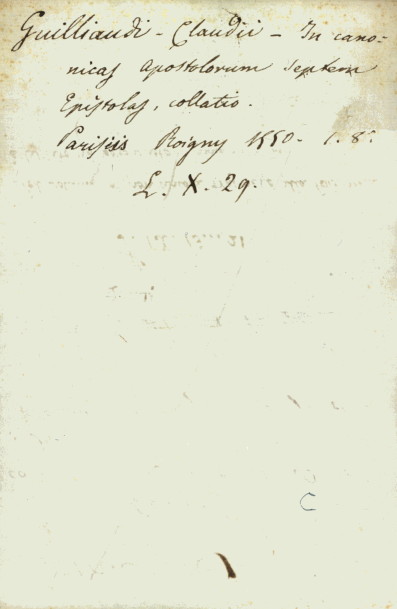 Guilliaudi - Claudii - In cano-
nicas Apostolorum septem
Epistolas, collatio.
Parisiis Roigny 1550. 1. 8°.
L. X. 29.
C